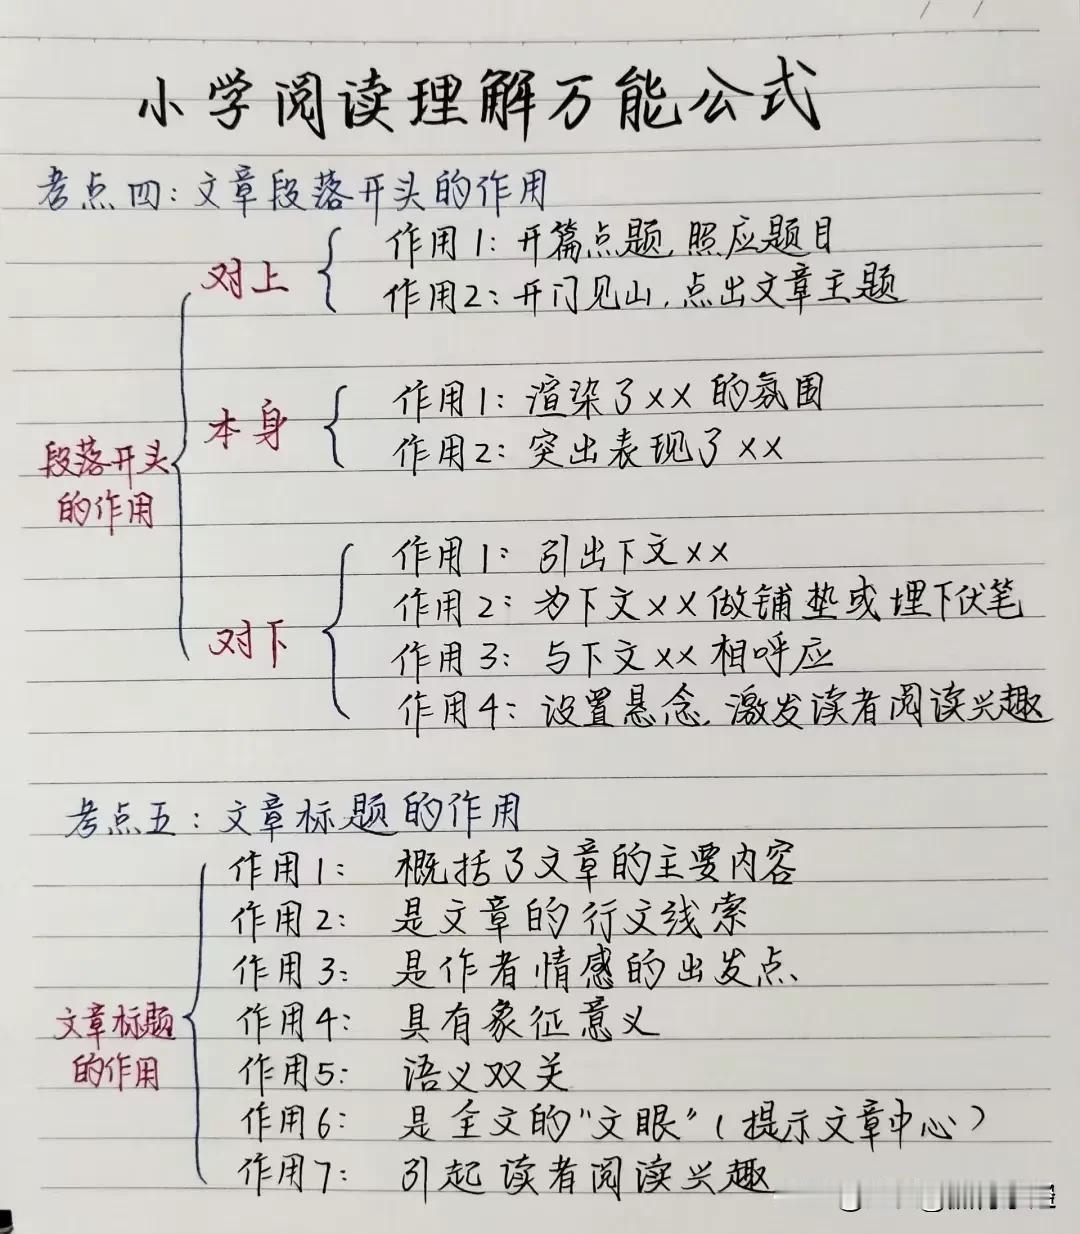 小学阅读理解万能公式
考点四：文章段落开头的作用
对上
作用1：开篇点题，照应题目
作用2：开门见山，点出文章主题
段落开头的作用
本身
作用1：渲染了××的氛围
作用2：突出表现了××
对下
作用1：引出下文××
作用2：为下文××做铺垫或埋下伏笔
作用3：与下文××相呼应
作用4：设置悬念，激发读者阅读兴趣
考点五：文章标题的作用
文章标题的作用
作用1：概括了文章的主要内容
作用2：是文章的行文线索
作用3：是作者情感的出发点、
作用4：具有象征意义
作用5：语义双关
作用6：是全文的“文眼”（提示文章中心）
作用7：引起读者阅读兴趣